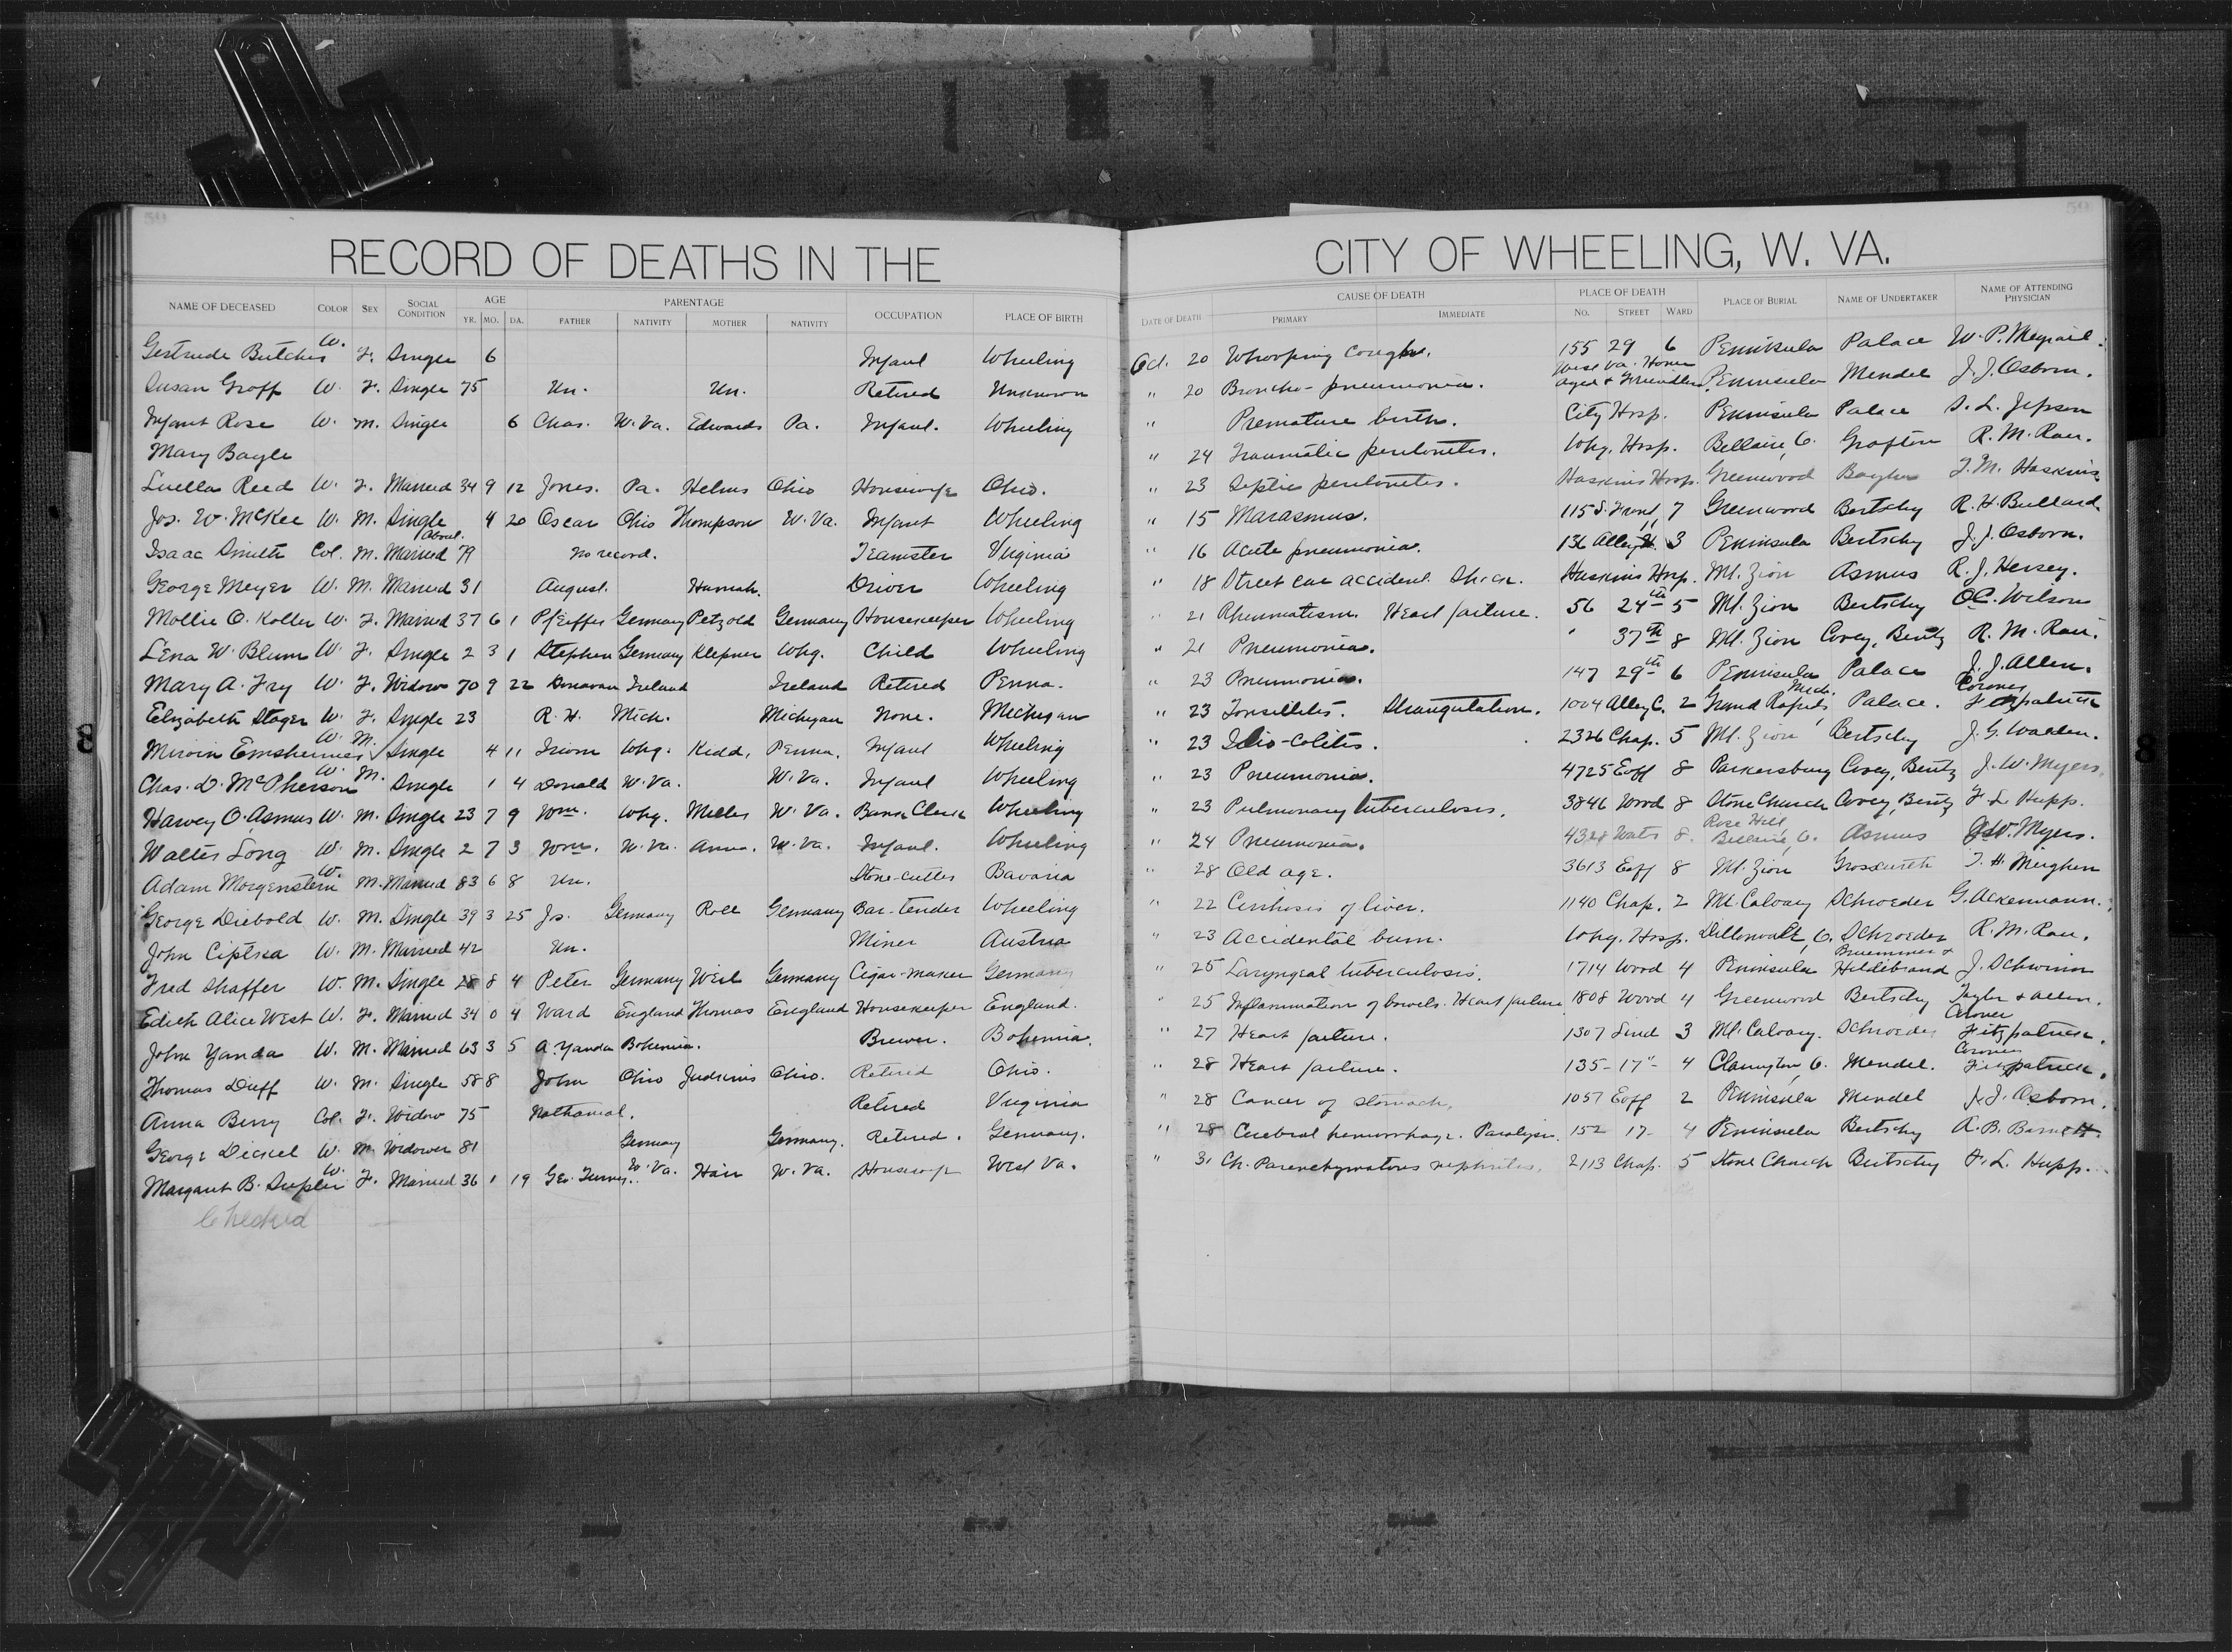 50 50
RECORD OF DEATHS IN THE CITY OF WHEELING, W. VA.
NAME OF DECEASED COLOR SEX SOCIAL CONDITION AGE YR. MO. DA. PARENTAGE FATHER NATIVITY MOTHER NATIVITY OCCUPATION PLACE OF BIRTH DATE OF DEATH CAUSE OF DEATH PRIMARY IMMEDIATE PLACE OF DEATH NO. STREET WARD PLACE OF BURIAL NAME OF UNDERTAKER NAME OF ATTENDING PHYSICIAN
Gertrude Butcher W. F. Single 6 Infant Wheeling Oct. 20 Whooping cough. 155 29 6 Peninsula Palace W. P. Megrail.
Susan Groff W. F. Single 75 Un. Un. Retired Unknown " 20 Broncho-pneumonia. West Va. Home Aged & Friendless Peninsula Mendel J. J. Osborn.
Infant Rose W. M. Single 6 Chas. W. Va. Edwards Pa. Infant. Wheeling " Premature birth. City Hosp. Peninsula Palace S. L. Jepson
Mary Bayle " 24 Traumatic peritonitis. Whg. Hosp. Bellaire, O. Grafton R. M. Rau.
Luella Reed W. F. Married 34 9 12 Jones. Pa. Helms Ohio Housewife Ohio. " 23 Septic peritonitis. Haskins Hosp. Greenwood Bayha T. M. Haskins
Jos. W. McKee W. M. Single 4 20 Oscar Ohio Thompson W. Va. Infant Wheeling " 15 Marasmus. 115 S. Front 7 Greenwood Bertschy R. H. Bullard
Isaac Smith Col. M. Married About 79 No record. Teamster Virginia " 16 Acute pneumonia. 136 Alley 11 3 Peninsula Bertschy J. J. Osborn.
George Meyer W. M. Married 31 August. Hannah. Driver Wheeling " 18 Street car accident. Shock. Haskins Hosp. Mt. Zion Asmus R. J. Hersey.
Mollie O. Koller W. F. Married 37 6 1 Pfeiffer Germany Petzold Germany Housekeeper Wheeling " 21 Rheumatism. Heart failure. 56 24th 5 Mt. Zion Bertschy O.C. Wilson
Lena W. Blum W. F. Single 2 3 1 Stephen Germany Klepner Whg. Child Wheeling " 21 Pneumonia. " 37th 8 Mt. Zion Covey, Bentz R. M. Rau.
Mary A. Fry W. F. Widow 70 9 22 Donavan Ireland Ireland Retired Penna. " 23 Pneumonia. 147 29th 6 Peninsula Palace J. J. Allen.
Elizabeth Stager W. F. Single 23 R. H. Mich. Michigan None. Michigan " 23 Tonsillitis. Strangulation. 1004 Alley C. 2 Grand Rapids, Mich. Palace. Coroner Fitzpatrick
Emsheimer W. M. Single 4 11 Whg. Kidd, Penna. Infant Wheeling " 23 Ilio-colitis. 2326 Chap. 5 Mt. Zion Bertschy J. G. Walden.
Chas. D. McPherson W. M. Single 1 4 Donald W. Va. W. Va. Infant Wheeling " 23 Pneumonia. 4725 Eoff 8 Parkersburg Covey, Bentz J. W. Myers.
Harvey O. Asmus W. M. Single 23 7 9 Wm. Whg. Miller W. Va. Bank Clerk Wheeling " 23 Pulmonary tuberculosis. 3846 Wood 8 Stone Church Covey, Bentz F. L. Hupp.
Walter Long W. M. Single 2 7 3 Wm. W. Va. Anna. W. Va. Infant. Wheeling " 24 Pneumonia. 4328 Water 8. Rose Hill Bellaire, O. Asmus J. W. Myers.
Adam Morgenstern W. M. Married 83 6 8 Un. Stone-cutter Bavaria " 28 Old age. 3613 Eoff 8 Mt. Zion Grosscurth T. H. Meighen
George Diebold W. M. Single 39 3 25 Jos. Germany Roll Germany Bar-tender Wheeling " 22 Cirrhosis of liver. 1140 Chap. 2 Mt. Calvary Schroeder G. Ackermann.
John Ciptka W. M. Married 42 Un. Miner Austria " 23 Accidental burn. Whg. Hosp. Dillonvale, O. Schroeder R. M. Rau.
Fred Shaffer W. M. Single 28 8 4 Peter Germany Weil Germany Cigar-maker Germany " 25 Laryngeal tuberculosis. 1714 Wood 4 Peninsula Bruemmer & Hildebrand J. Schwinn
Edith Alice West W. F. Married 34 0 4 Ward England Thomas England Housekeeper England. " 25 Inflammation of bowels. Heart failure 1808 Wood 4 Greenwood Bertschy Taylor & Allen.
John Yanda W. M. Married 63 3 5 A. Yanda Bohemia. Brewer. Bohemia. " 27 Heart failure. 1307 Lind 3 Mt. Calvary. Schroeder Coroner Fitzpatrick.
Thomas Duff W. M. Single 58 8 John Ohio Judkins Ohio. Retired Ohio. " 28 Heart failure. 135-17" 4 Clarington, O. Mendel. Coroner Fitzpatrick.
Anna Berry Col. F. Widow 75 Nathanial. Retired Virginia " 28 Cancer of stomach. 1057 Eoff 2 Peninsula Mendel J. J. Osborn.
George Dickel W. M. Widower 81 Germany Germany. Retired. Germany. " 28 Cerebral hemorrhage. Paralysis. 152 17- 4 Peninsula Bertschy A. B. Barnett
Margaret B. Supler W. F. Married 36 1 19 Geo. Turner W. Va. Hair W. Va. Housewife West Va. " 31 Ch. Parenchymatous nephritis. 2113 Chap. 5 Stone Church Bertschy F. L. Hupp.
Checked
8 8